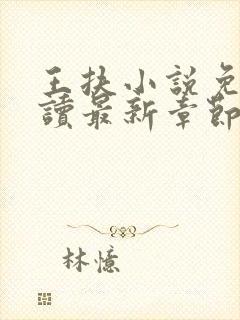 王扶小說免
讀最新章節
林憶